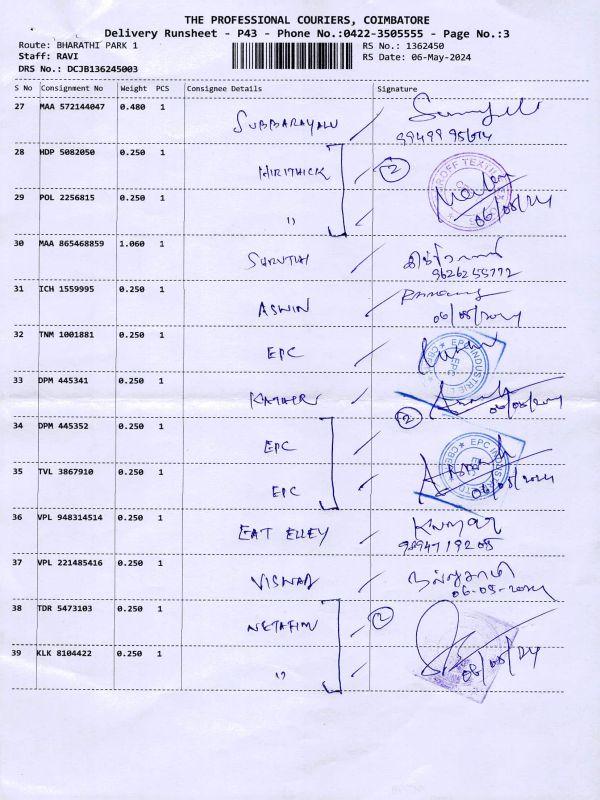 THE PROFESSIONAL COURIERS, COIMBATORE
Delivery Runsheet - P43 - Phone No.:0422-3505555 - Page No.:3
Route: BHARATHI PARK 1 RS No.: 1362450
Staff: RAVI RS Date: 06-May-2024
DRS No.: DCJB136245003
S No Consignment No Weight PCS Consignee Details Signature
27 MAA 572144047 0.480 1 SUBBARAYALU
28 HDP 5082050 0.250 1 HIRITHICK 2
29 POL 2256815 0.250 1 "
06/05/24
30 MAA 865468859 1.060 1 SHRUTHI
9626255772
31 ICH 1559995 0.250 1 ASWIN
06/05/2024
32 TNM 1001881 0.250 1 EPC
EPC INDUSTRIE
EPC
33 DPM 445341 0.250 1
06/05/2024
34 DPM 445352 0.250 1 EPC 2
35 TVL 3867910 0.250 1 EPC
06/05/2024
36 VPL 948314514 0.250 1 EAT ELLEY Kumar
9894719205
37 VPL 221485416 0.250 1
06-05-2024
38 TDR 5473103 0.250 1 NETAFIM 2
39 KLK 8104422 0.250 1 "